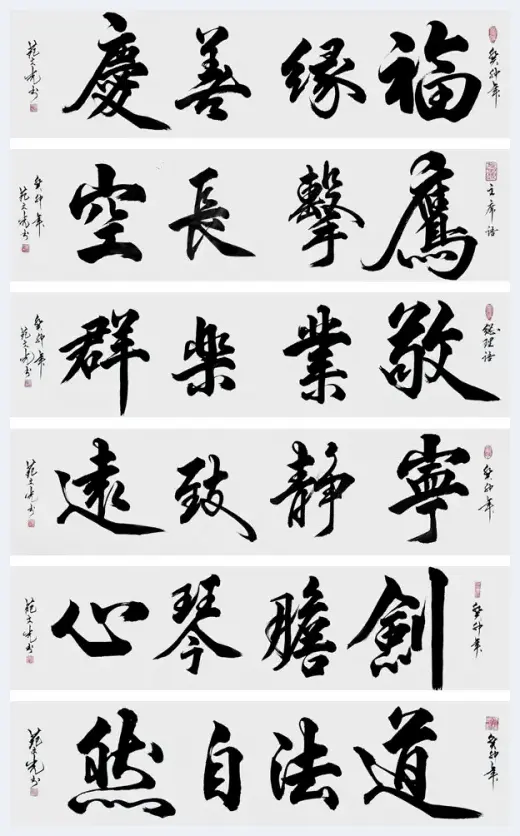 癸卯年
福缘善慶
范文书
主席语
鷹擊長空
癸卯年
范文书
總理语
敬業楽群
癸卯年
范文书
癸卯年
寧静致遠
范文书
癸卯年
劍膽琴心
范文书
癸卯年
道法自然
范文书